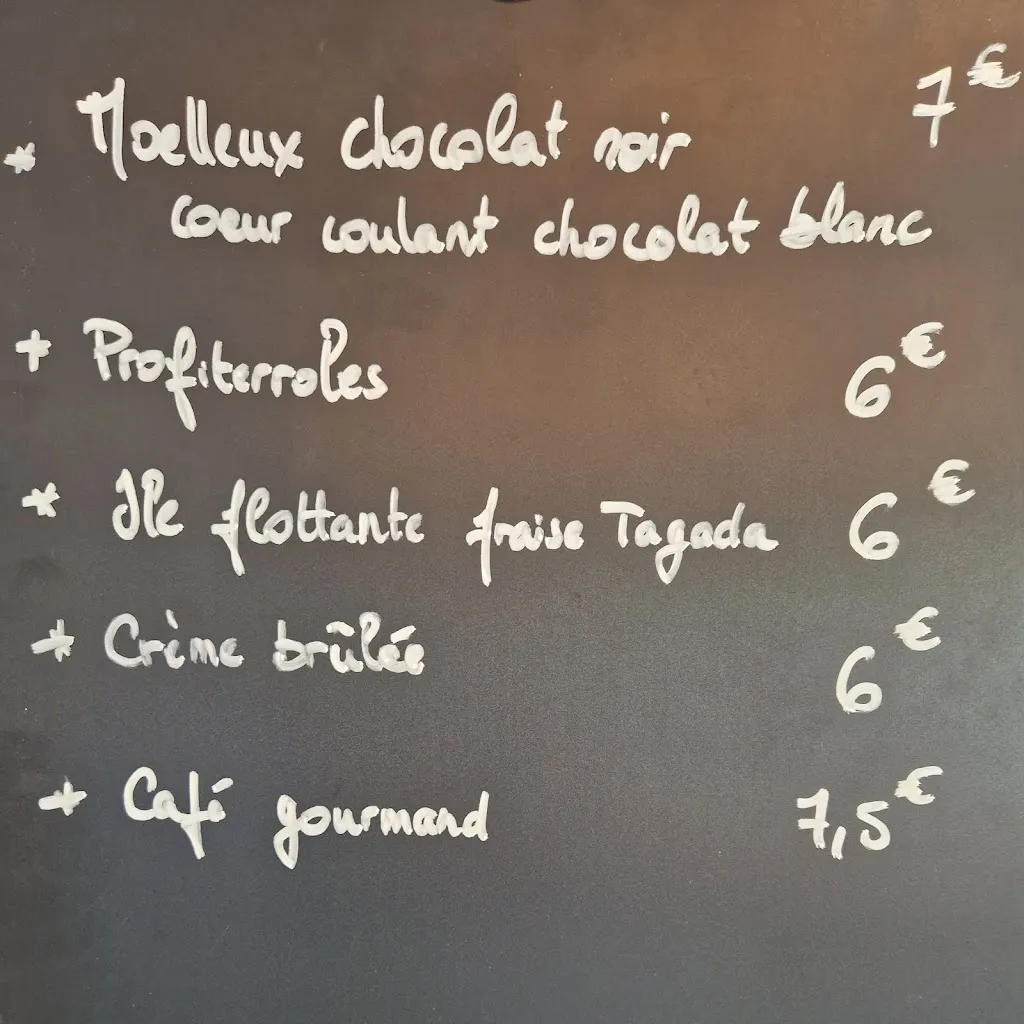 * Moelleux chocolat noir 7€
coeur coulant chocolat blanc
* Profiterroles 6€
* Ile flottante fraise Tagada 6€
* Crème brûlée 6€
* Café gourmand 7,5€